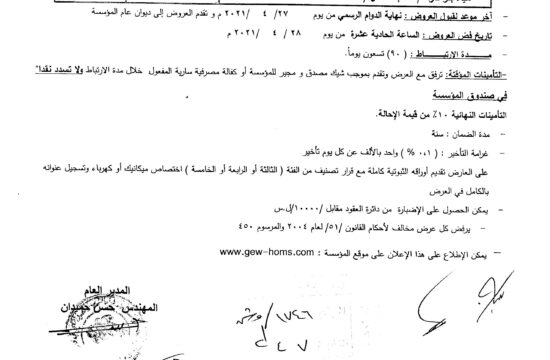 - آخر موعد لقبول العروض : نهاية الدوام الرسمي من يوم ٢٧/ ٤ /٢٠٢١ م و تقدم العروض إلى ديوان عام المؤسسة
- تاريخ فض العروض : الساعة الحادية عشرة من يوم ٢٨ / ٤ /٢٠٢١ م
- مدة الإرتباط : ( ٩٠ ) تسعون يوماً.
- التأمينات المؤقتة: ترفق مع العرض وتقدم بموجب شيك مصدق و مجير للمؤسسة أو كفالة مصرفية سارية المفعول خلال مدة الارتباط ولا تسدد نقداً"
في صندوق المؤسسة
التأمينات النهائية ١٠٪ من قيمة الإحالة.
- مدة الضمان : سنة
- غرامة التأخير : ( ٠،١ % ) واحد بالألف عن كل يوم تأخير
على العارض تقديم أوراقه الثبوتية كاملة مع قرار تصنيف من الفئة ( الثالثة أو الرابعة أو الخامسة ) اختصاص ميكانيك أو كهرباء وتسجيل عنوانه
بالكامل في العرض
- يمكن الحصول على الإضبارة من دائرة العقود مقابل /١٠٠٠٠/ل.س
- يرفض كل عرض مخالف لأحكام القانون /٥١/لعام ٢٠٠٤ والمرسوم ٤٥٠
- يمكن الإطلاع على هذا الإعلان على موقع المؤسسة : www.gew-homs.com
المدير العام
المهندس حسن حميدان